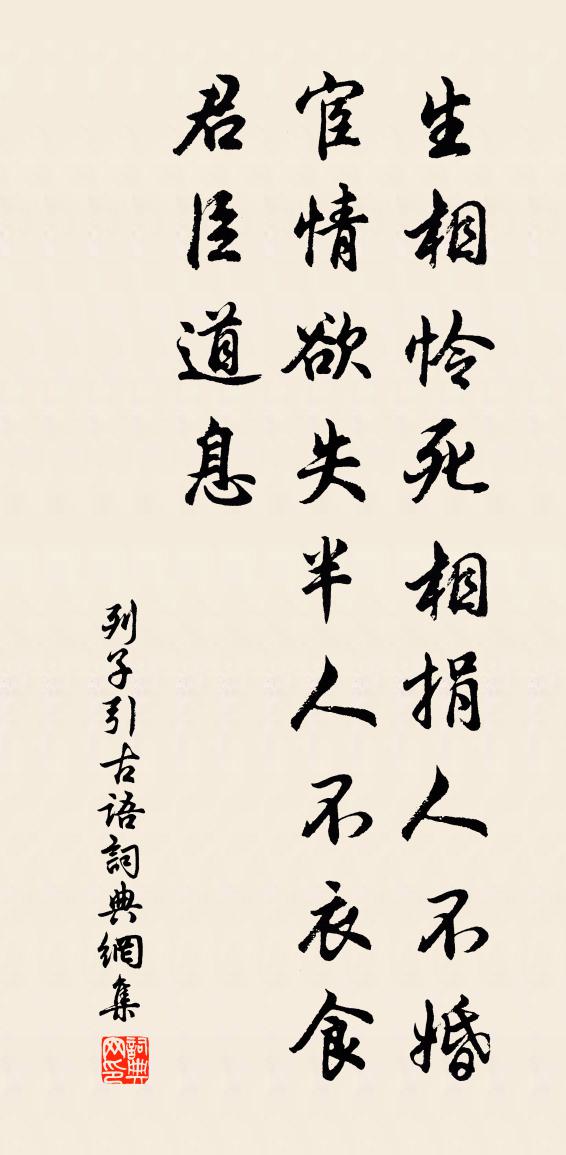 生相怜死相捐人不婚
宦情欲失半人不衣食
君臣道息
列子引古語詞典網集
詞典网印